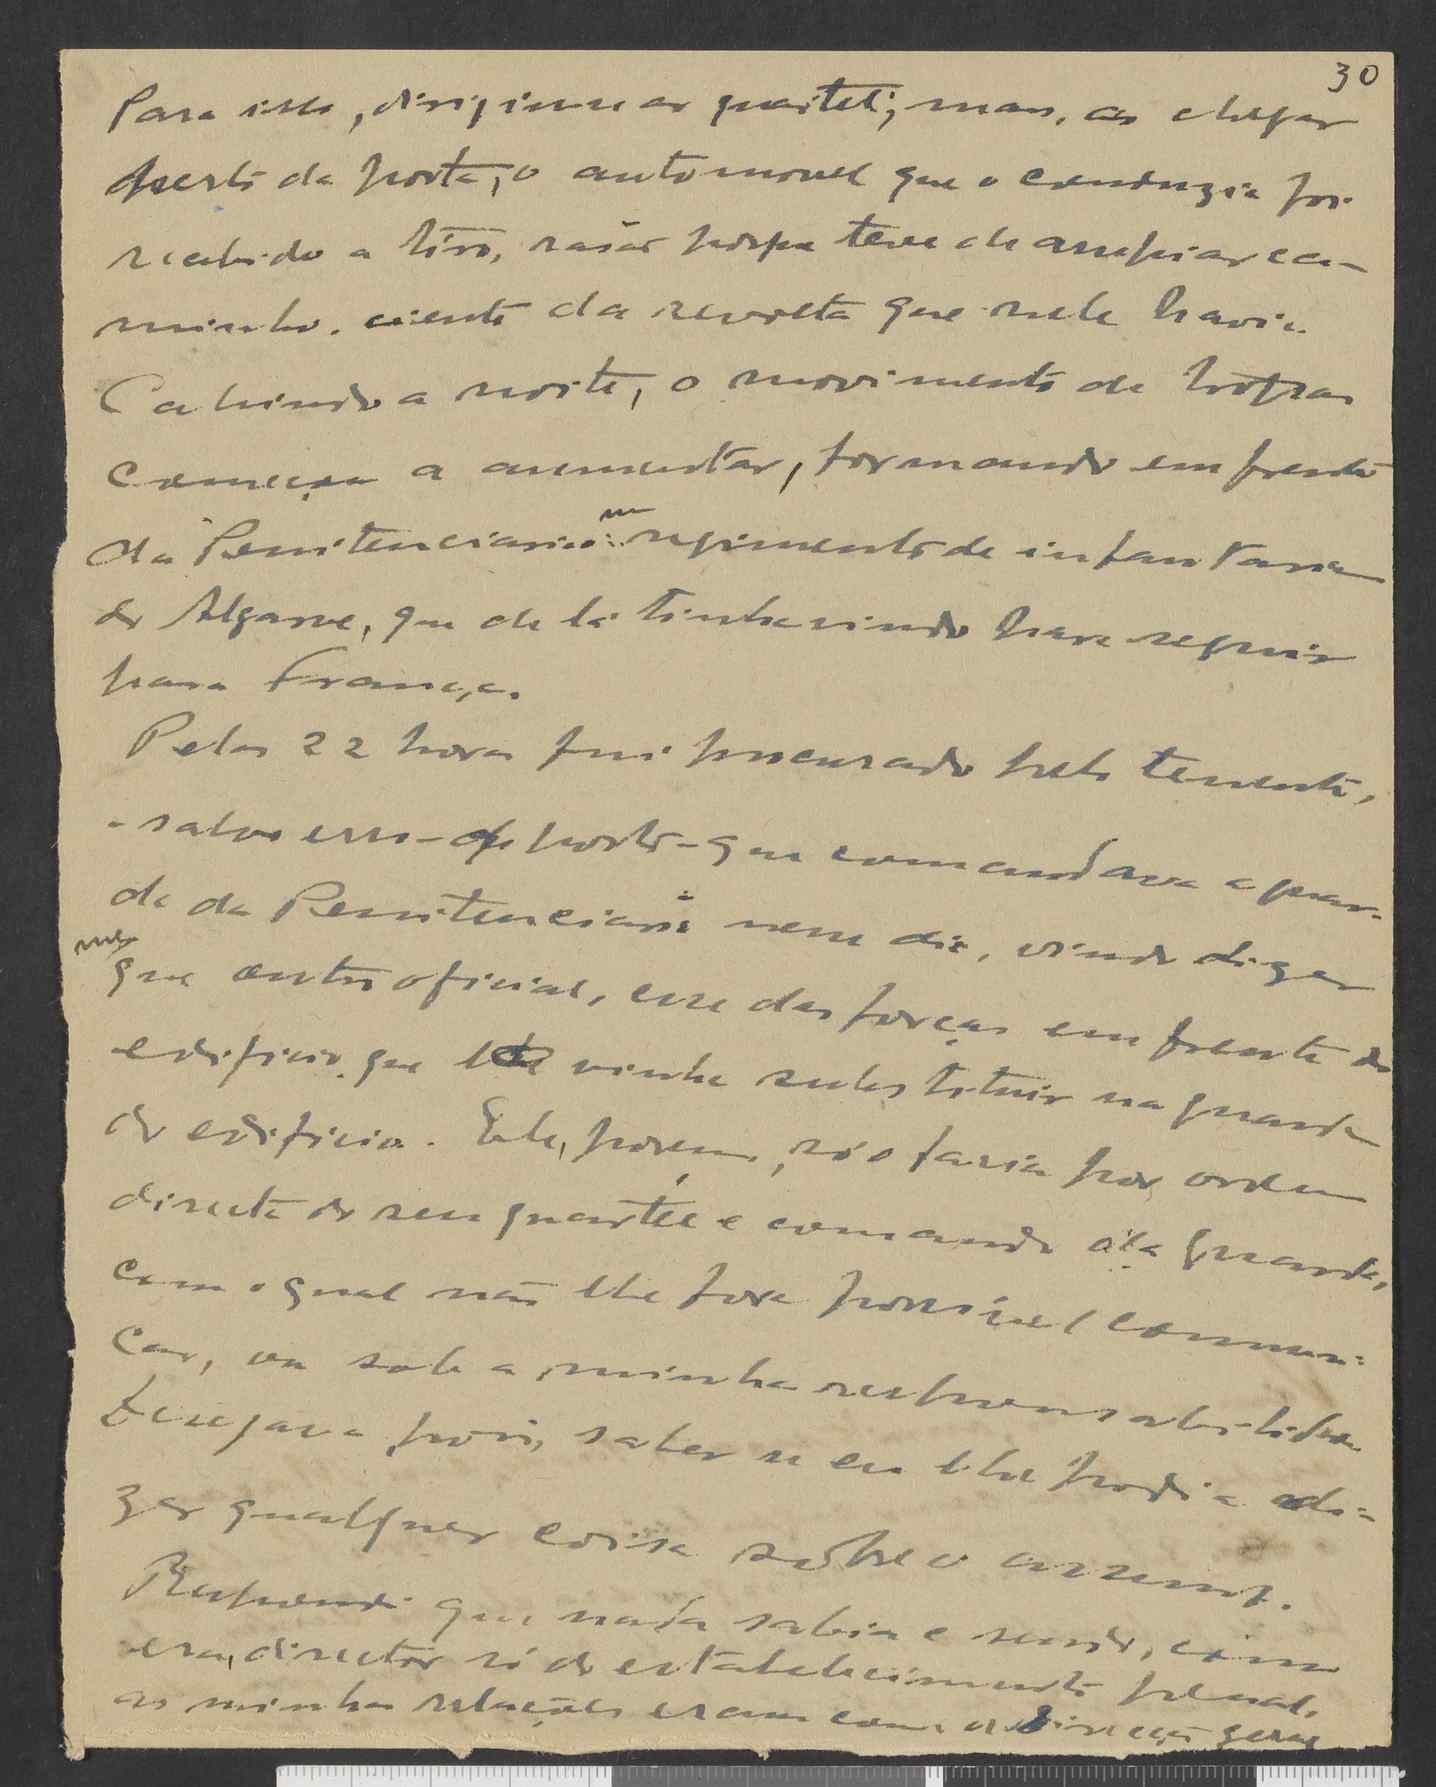 30
Para isso, dirigiu-se ao quartel; mas, ao chegar
perto da porta, o automovel que o conduzia foi
recebido a tiro, razão porque teve de arrepiar ca-
minho, ciente da revolta que nele havia.
Cahindo a noite, o movimento de tropas
começou a aumentar, formando em frente
da Penitenciaria um regimento de infantaria
do Algarve, que de lá tinha vindo para seguir
para França.
Pelas 22 horas fui procurado pelo tenente,
- salvo erro de posto - que comandava a guar-
da da Penitenciaria nesse dia, vindo dizer
me que outro oficial, esse das forças em frente do
edificio que o vinha substituir na guarda
do edificio. Ele, porém, só o faria por ordem
directa do seu quartel e comando da guarda,
com o qual não lhe fora possivel comuni-
car, ou sob a minha responsabilidade.
Desejava, pois, saber se eu lhe podia di-
zer qualquer coisa sôbre o assunto.
Respondi que nada sabia e sendo, como
era, director só do estabelecimento penal,
as minhas relações eram com a Direcção geral